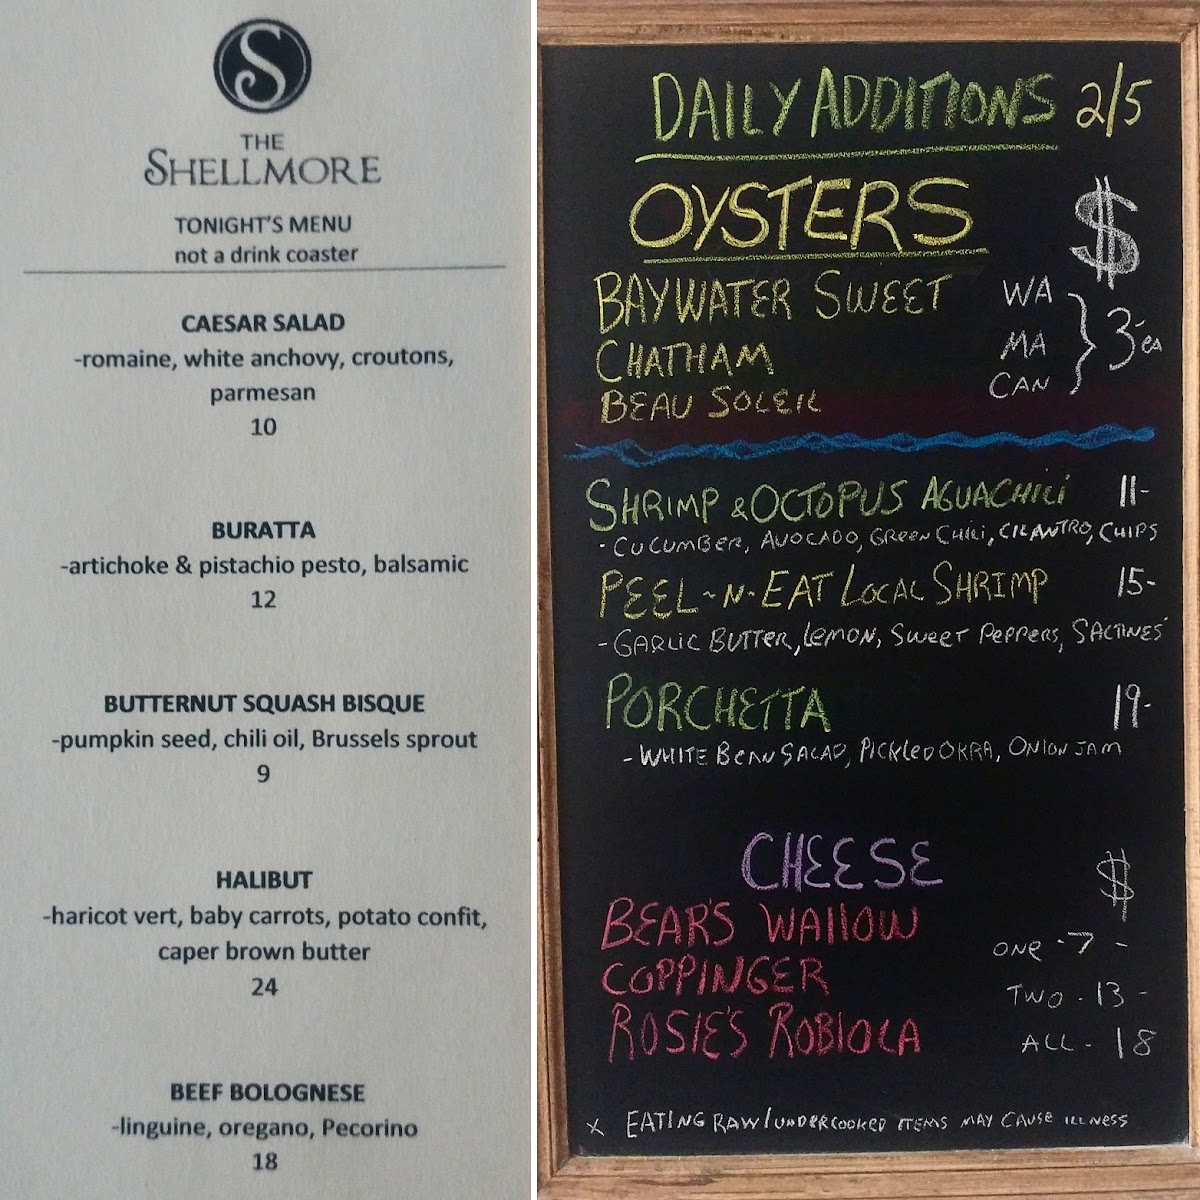 S
THE
SHELLMORE
TONIGHT'S MENU
not a drink coaster
CAESAR SALAD
-romaine, white anchovy, croutons,
parmesan
10
BURATTA
-artichoke & pistachio pesto, balsamic
12
BUTTERNUT SQUASH BISQUE
-pumpkin seed, chili oil, Brussels sprout
9
HALIBUT
-haricot vert, baby carrots, potato confit,
caper brown butter
24
BEEF BOLOGNESE
-linguine, oregano, Pecorino
18
DAILY ADDITIONS 2/5
OYSTERS $
BAYWATER SWEET WA
CHATHAM MA } 3- EA
BEAU SOLEIL CAN
SHRIMP & OCTOPUS AGUACHILI 11-
- CUCUMBER, AVOCADO, GREEN CHILI, CILANTRO, CHIPS
PEEL-N-EAT LOCAL SHRIMP 15-
- GARLIC BUTTER, LEMON, SWEET PEPPERS, SALTINES
PORCHETTA 19-
- WHITE BEAN SALAD, PICKLED OKRA, ONION JAM
CHEESE $
BEAR'S WALLOW ONE - 7 -
COPPINGER TWO - 13 -
ROSIE'S ROBIOLA ALL - 18
x EATING RAW/UNDERCOOKED ITEMS MAY CAUSE ILLNESS